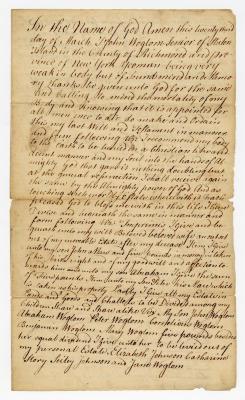 In the Name of God Amen this twenty third
day of March I John Woglom Senior of Staten
Island in the County of Richmond and pro
vince of New York Yeoman being very
weak in body but of Sound mind and Memo
ry thanks be given unto God for the same
And Calling to mind the mortality of my
Body and Knowing that it is appointed for
all men once to die do make and ordain
this my last Will and Testament in manner
and form following viz I recommend my body
to the Earth to be buried in a Christian like and
decent manner and my Soul into the hands of Al
mighty God that gave it nothing doubting but
at the general resurrection I shall receive again
the same by the Almighty power of God And as
touching Such worldly Estate wherewith it hath
pleased God to bless me with in this life I give
Devise and the same in manner and
form following viz Imprimis I give and be
queath unto my well Beloved
out of my moveable Estate after my decease Item I give
unto my Son John three and four pounds in money in token
of his birth right and of my good will and
towards him Item unto my son Abraham I give the sum
of pounds Item I unto my Son Peter
Lands and Goods and Chattels to be Divided among my
Children and Share alike Viz My Son John Woglom
Abraham Woglom Peter Woglom Cornelius Woglom
Benjamin Woglom Mary Woglom five pounds besides
her equal dividend I give unto her to be levied out of
my personal Estate Elizabeth Johnson Catharine
Story Johnson and Jane Woglom